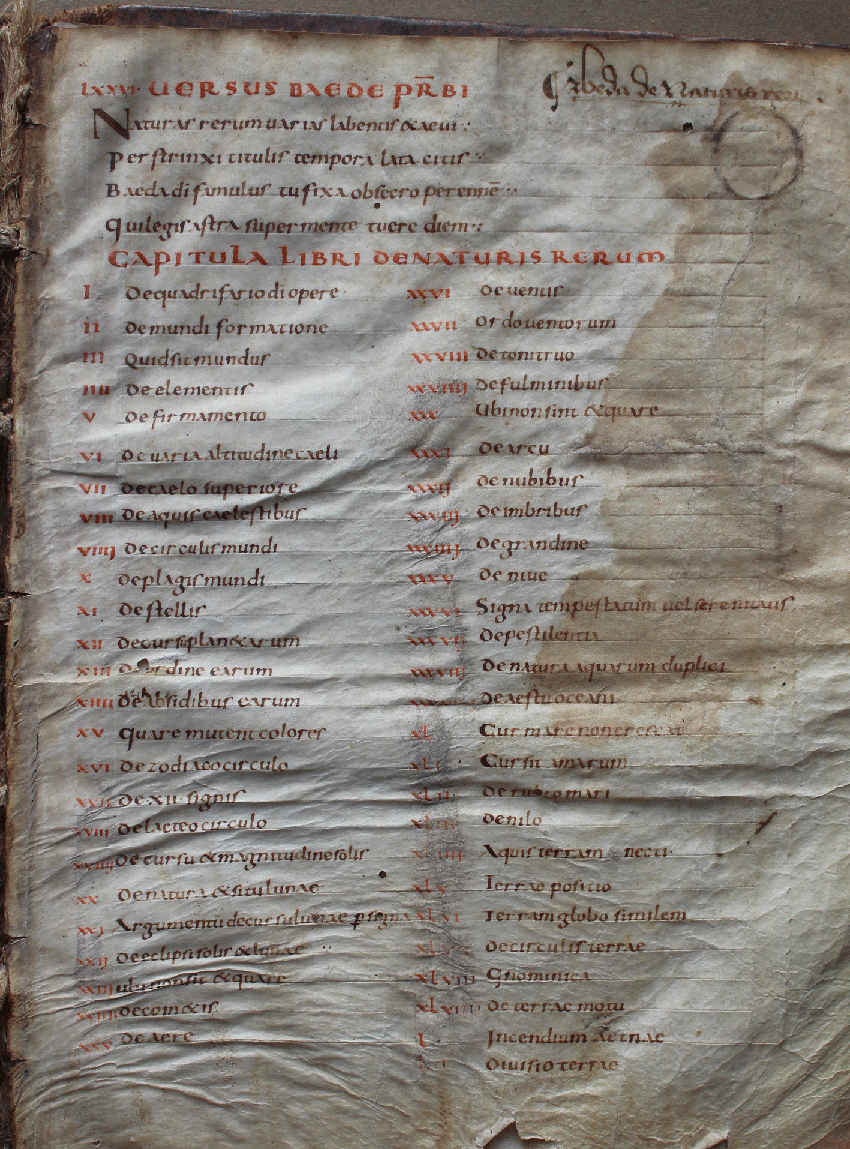 LXXVI UERSUS BAEDE PR̄BI
Beda de Naturis reru
Naturas rerum uarias labentis & aeui
Perstrinxi titulis tempora lata citis
Baeda di famulus tu fixa obsecro perennē
Qui legis astra super mente tuere diem
CAPITULA LIBRI DE NATURIS RERUM
I De quadrifario di opere
II De mundi formatione
III Quid sit mundus
IIII De elementis
V De firmamento
VI De uaria altitudine caeli
VII De caelo superiore
VIII De aquis caelestibus
VIIII De circulis mundi
X De plagis mundi
XI De stellis
XII De cursu plan&arum
XIII De ordine earum
XIIII De absidibus earum
XV Quare mutent colores
XVI De zodiaco circulo
XVII De XII signis
XVIII De lacteo circulo
XVIIII De cursu & magnitudine solis
XX De natura & situ lunae
XXI Argumentū de cursu lunae p signa
XXII De eclipsi solis & lunae
XXIII ubi non sit & quare
XXIIII De com&is
XXV De aere
XXVI De uentis
XXVII Ordo uentorum
XXVIII De tonitruo
XXVIIII De fulminibus
XXX Ubi non sint & quare
XXXI De arcu
XXXII De nubibus
XXXIII De imbribus
XXXIIII De grandine
XXXV De niue
XXXVI Signa tempestatum uel serenitatis
XXXVII De pestilentia
XXXVIII De natura aquarum duplici
De aestu oceani
XL Cur mare non crescat
XLI Cur sit amarum
XLII De rubro mari
XLIII De nilo
XLIIII Aquis terram necti
XLV Terrae positio
XLVI Terram globo similem
XLVII De circulis terrae
XLVIII Gnomonica
XLVIIII De terrae motu
L Incendium aetnae
LI Diuisio terrae